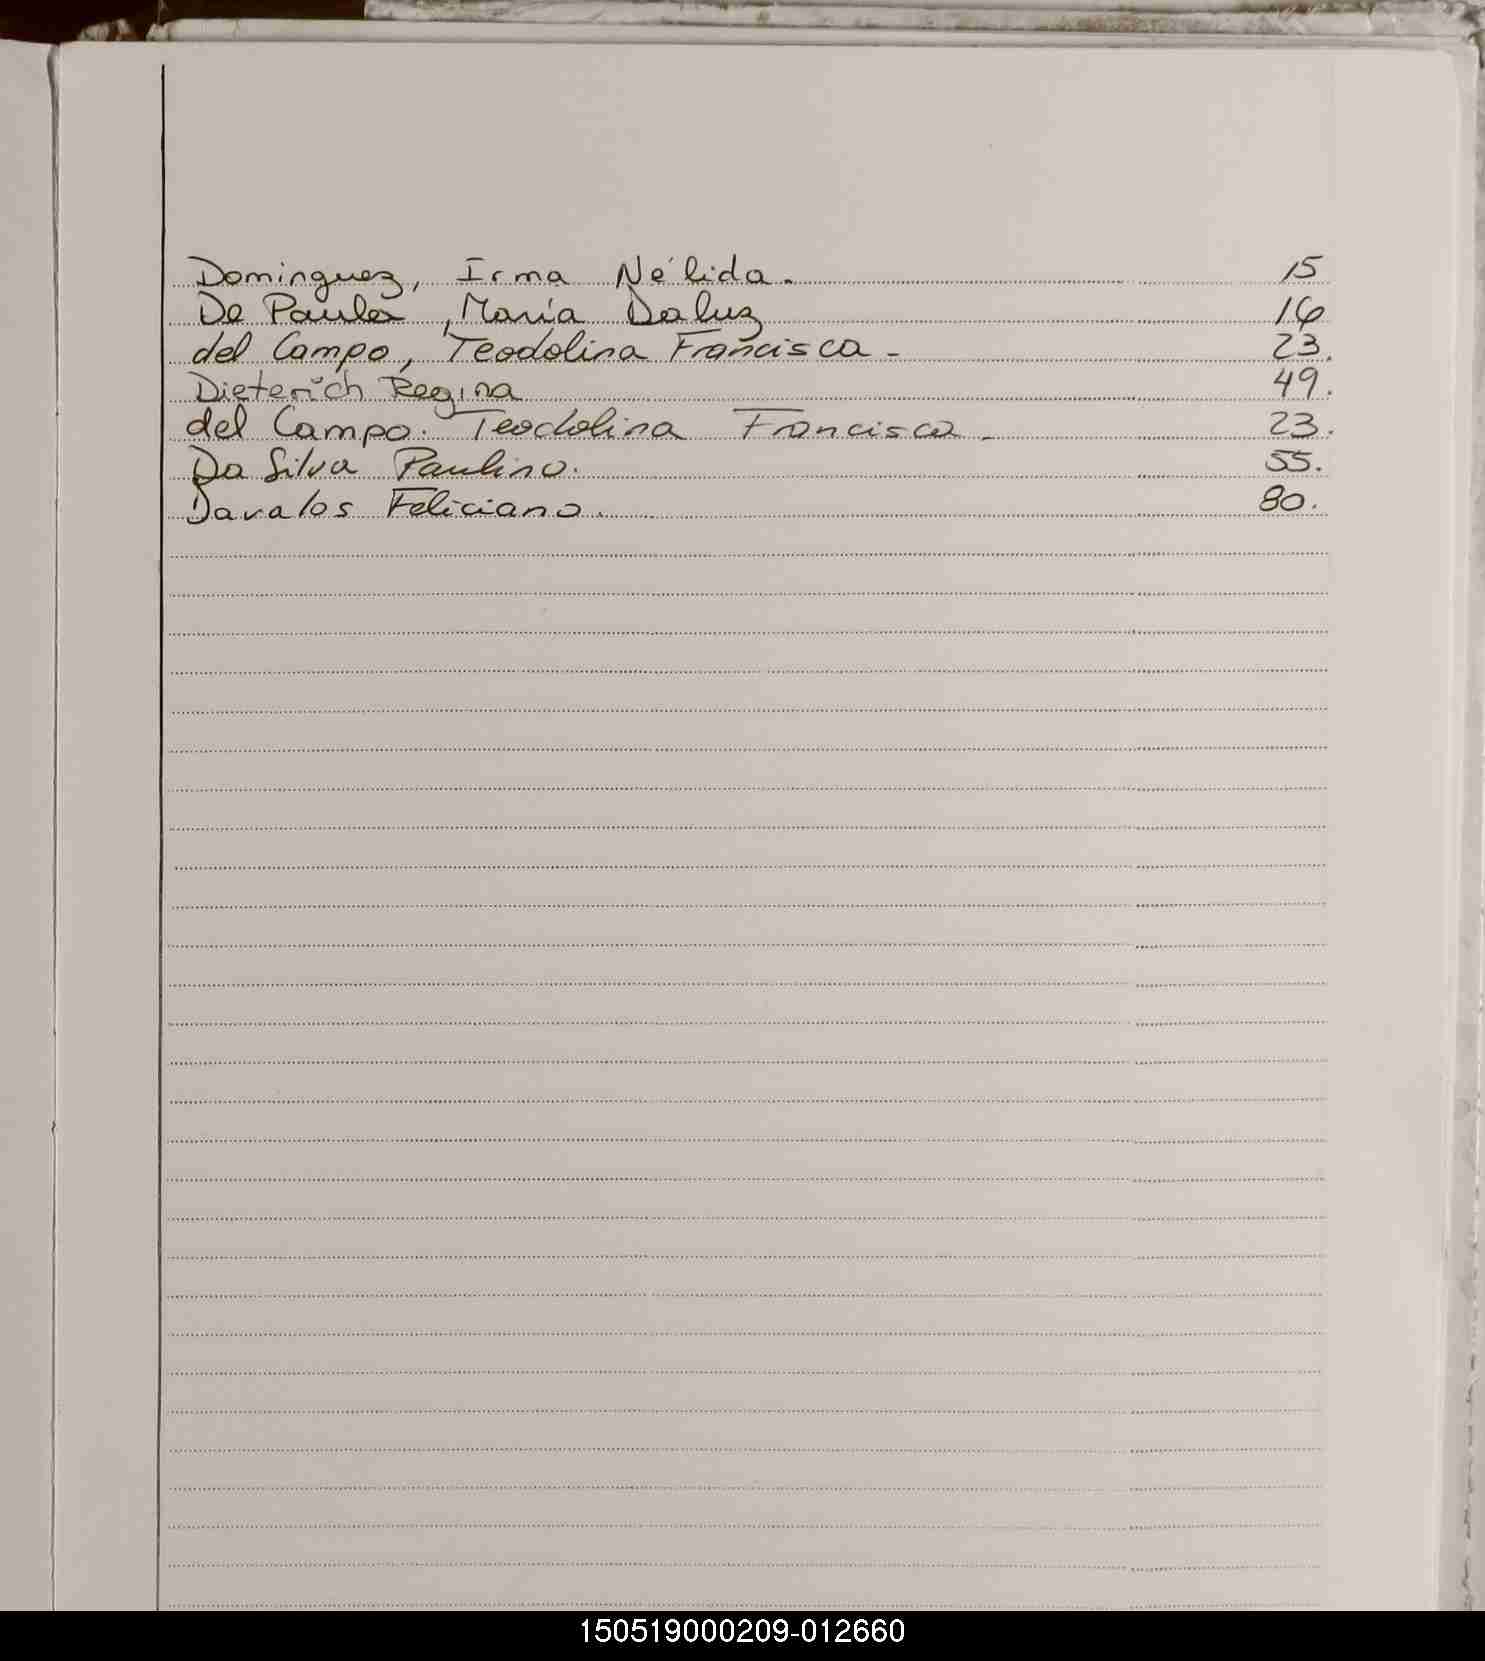 Dominguez, Irma Nélida. 15
De Paula, María Daluz 16
del Campo, Teodolina Francisca - 23.
Dieterich Regina 49.
del Campo. Teodolina Francisca - 23.
Da Silva Paulino. 55.
Davalos Feliciano. 80.
150519000209-012660